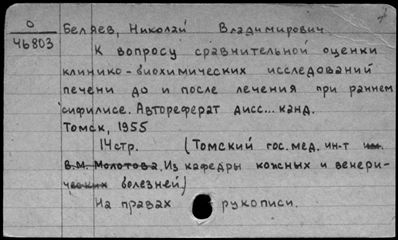 О Беляев, Николай Владимирович
46803
К вопросу сравнительной оценки
клинико-биохимических исследований
печени до и после лечения при раннем
сифилисе. Автореферат дисс... канд.
Томск, 1955
14стр. (Томский гос. мед. ин-т им.
В.М. Молотова. Из кафедры кожных и венери-
ческих болезней.)
На правах рукописи.